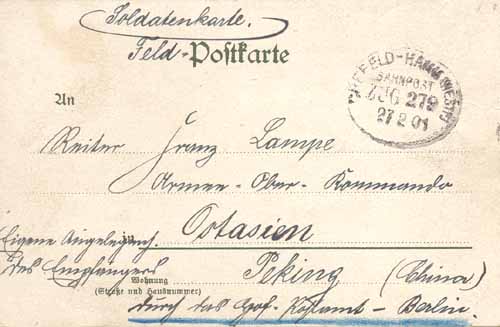 Soldatenkarte.
Feld-Postkarte
CREFELD-HAMM (WESTF)
BAHNPOST
ZUG 279
27 2 01
An
Reiter Franz Lampe
Armee-Ober-Kommando
Ostasien
Eigene Angelegenh.
des Empfängers
in
Peking (China)
Wohnung
(Straße und Hausnummer)
durch das Hof-Postamt-Berlin.